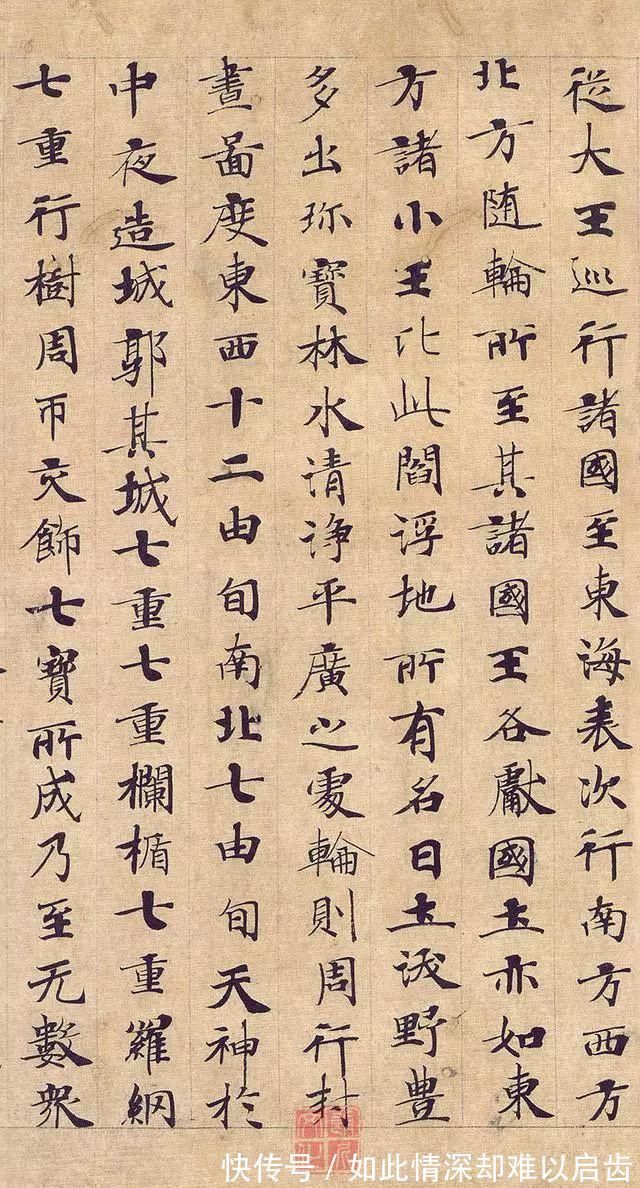 從大王巡行諸國至東海表次行南方西方
北方随輪所至其諸國王各獻國土亦如東
方諸小王比此閻浮地所有名曰土沃野豊
多出珎寳林水清淨平廣之處輪則周行封
畫啚度東西十二由旬南北七由旬天神於
中夜造城郭其城七重七重欄楯七重羅網
七重行樹周帀交飾七寶所成乃至无數衆
快传号 / 如此情深却难以启齿